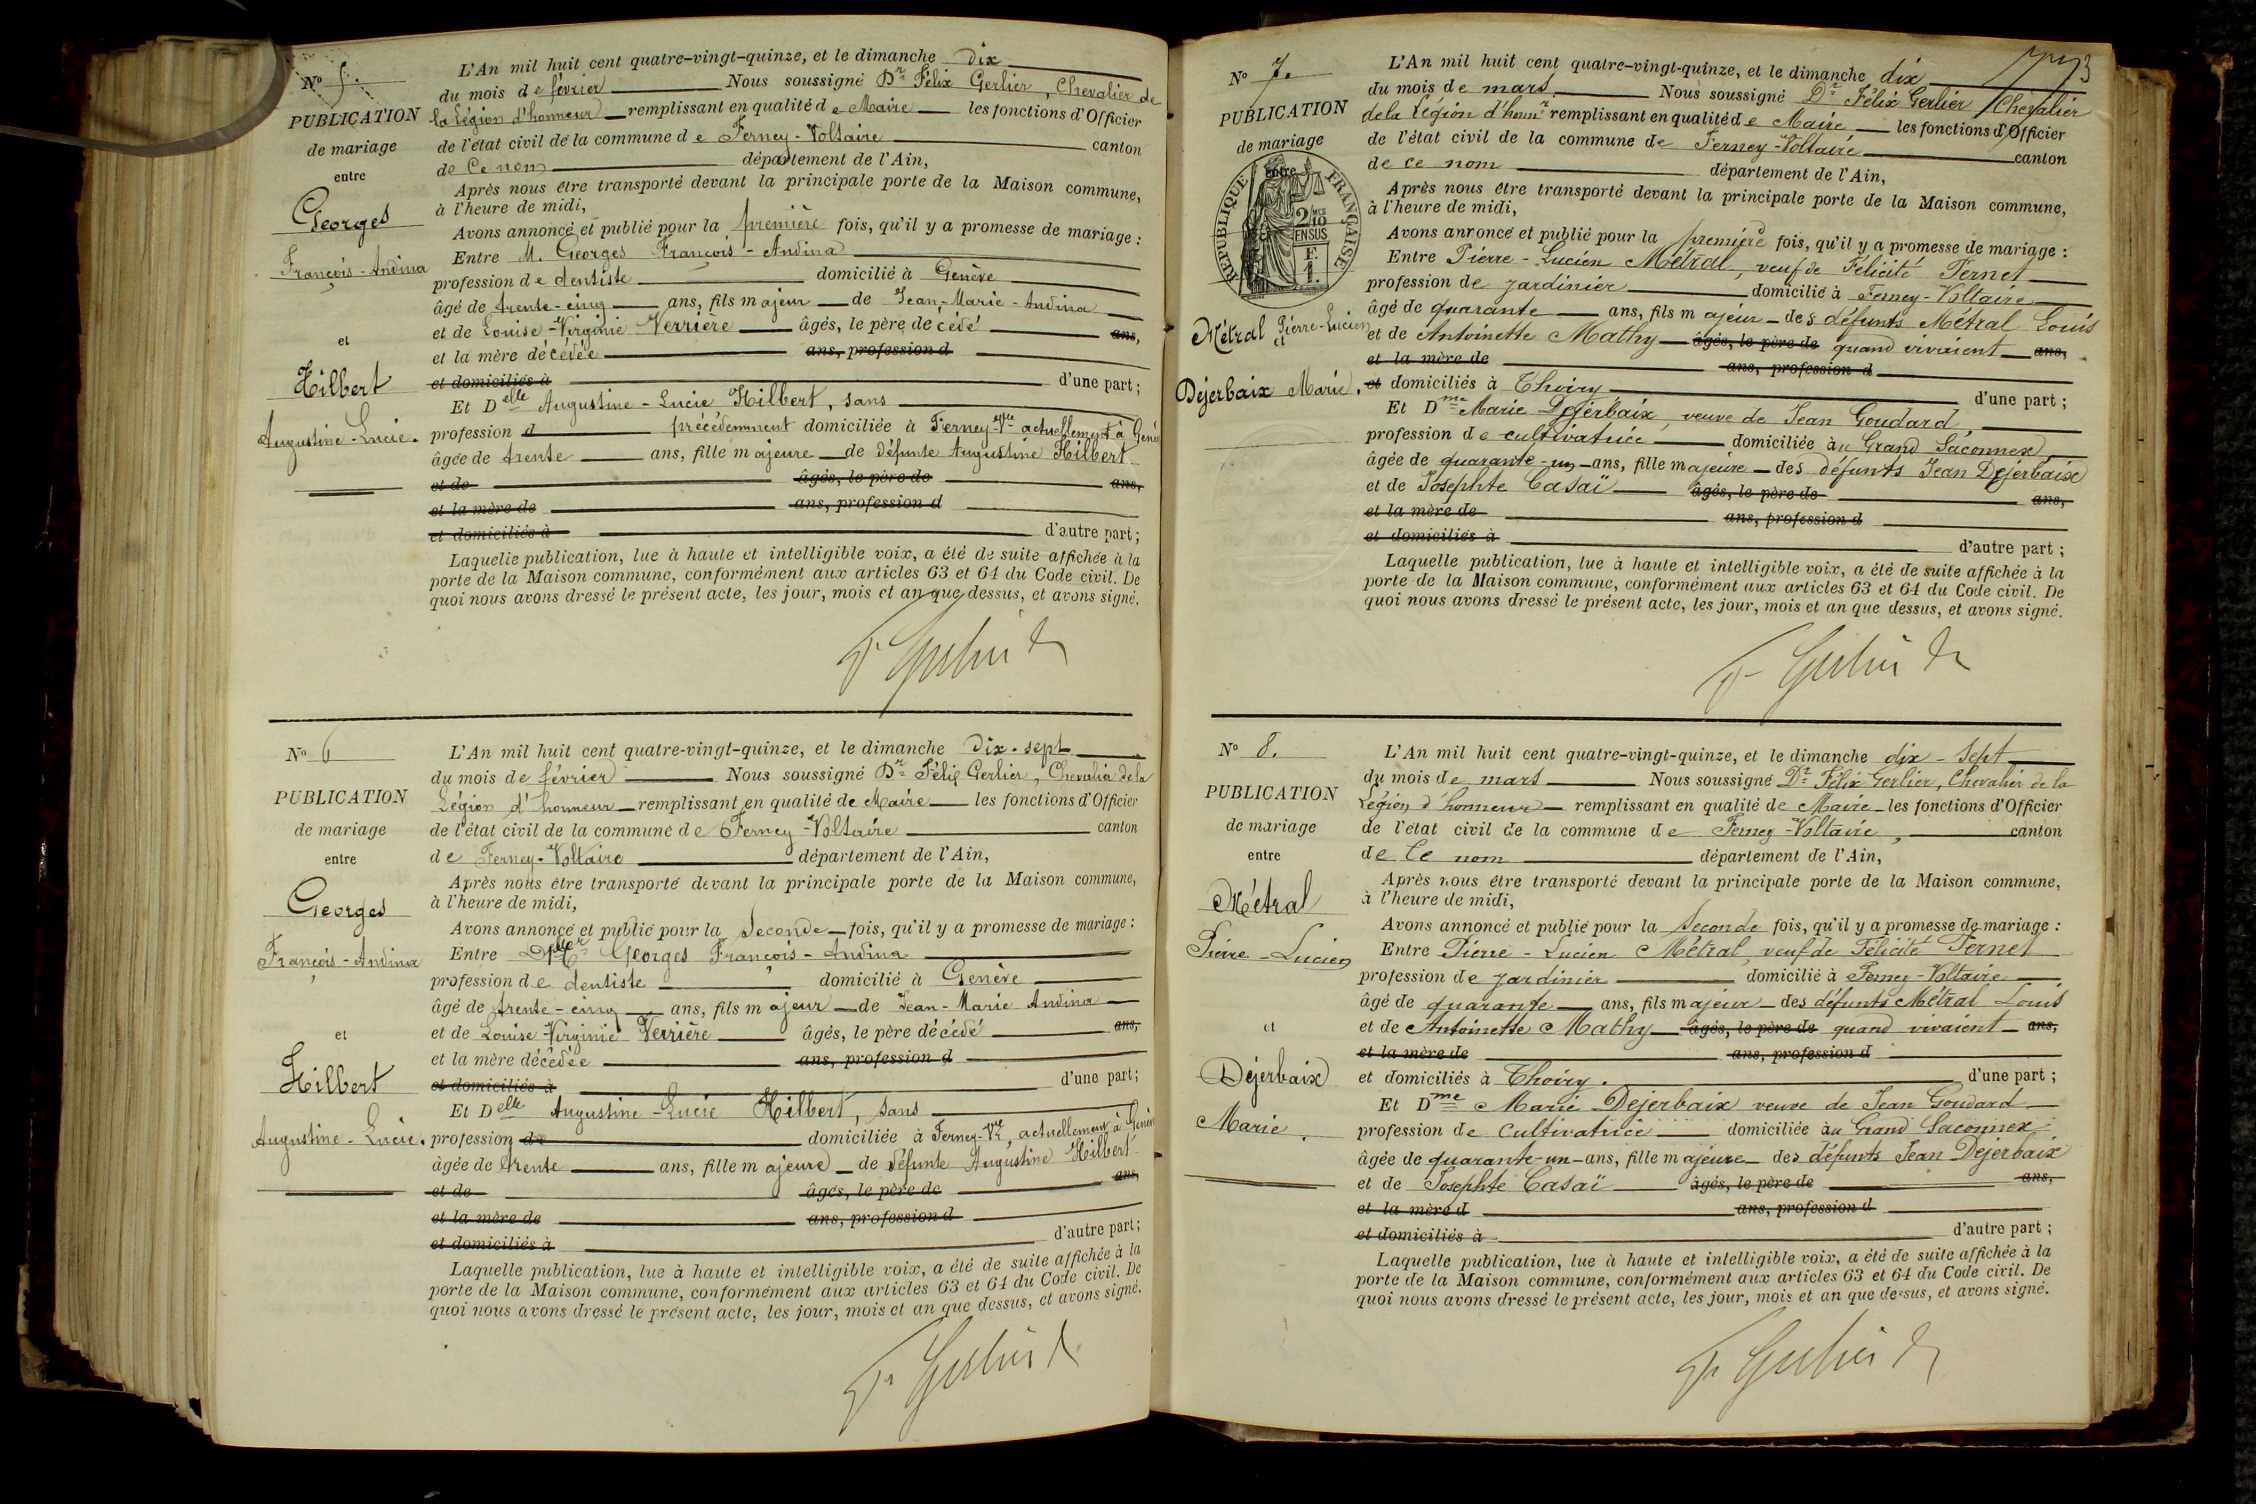 N° 5.
PUBLICATION
de mariage
entre
Georges
François-Andina
et
Hilbert
Augustine-Lucie.
L'An mil huit cent quatre-vingt-quinze, et le dimanche dix
du mois de février Nous soussigné Dr Félix Gerlier, Chevalier de
la Légion d'honneur remplissant en qualité de Maire les fonctions d'Officier
de l'état civil de la commune de Ferney-Voltaire canton
de Ce nom département de l'Ain,
Après nous être transporté devant la principale porte de la Maison commune,
à l'heure de midi,
Avons annoncé et publié pour la première fois, qu'il y a promesse de mariage :
Entre M. Georges François-Andina
profession de dentiste domicilié à Genève
âgé de trente-cinq ans, fils majeur de Jean-Marie-Andina
et de Louise-Virginie Verrière âgés, le père décédé ans,
et la mère décédée ans, profession d
et domiciliés à d'une part;
Et Delle Augustine-Lucie Hilbert, sans
profession d précédemment domiciliée à Ferney-Vre actuellement à Genè
âgée de trente ans, fille majeure de défunte Augustine Hilbert
et de âgés, le père de ans,
et la mère de ans, profession d
et domiciliés à d'autre part;
Laquelle publication, lue à haute et intelligible voix, a été de suite affichée à la
porte de la Maison commune, conformément aux articles 63 et 64 du Code civil. De
quoi nous avons dressé le présent acte, les jour, mois et an que dessus, et avons signé.
F Gerlier Dr
N° 6
PUBLICATION
de mariage
entre
Georges
François-Andina
et
Hilbert
Augustine-Lucie.
L'An mil huit cent quatre-vingt-quinze, et le dimanche Dix-sept
du mois de février Nous soussigné Dr Félix Gerlier, Chevalier de la
Légion d'honneur remplissant en qualité de Maire les fonctions d'Officier
de l'état civil de la commune de Ferney-Voltaire canton
de Ferney-Voltaire département de l'Ain,
Après nous être transporté devant la principale porte de la Maison commune,
à l'heure de midi,
Avons annoncé et publié pour la Seconde fois, qu'il y a promesse de mariage :
Entre Georges François-Andina
profession de dentiste domicilié à Genève
âgé de trente-cinq ans, fils majeur de Jean-Marie Andina
et de Louise-Virginie Verrière âgés, le père décédé ans,
et la mère décédée ans, profession d
et domiciliés à d'une part;
Et Delle Augustine-Lucie Hilbert, sans
profession de domiciliée à Ferney-Vre, actuellement à Genèv
âgée de trente ans, fille majeure de défunte Augustine Hilbert
et de âgés, le père de ans,
et la mère de ans, profession d
et domiciliés à d'autre part;
Laquelle publication, lue à haute et intelligible voix, a été de suite affichée à la
porte de la Maison commune, conformément aux articles 63 et 64 du Code civil. De
quoi nous avons dressé le présent acte, les jour, mois et an que dessus, et avons signé.
F Gerlier Dr
N° 7.
PUBLICATION
de mariage
entre
RÉPUBLIQUE FRANÇAISE
2/10
EN SUS
F.
1.
Métral Pierre-Lucien
et
Dejerbaix Marie.
L'An mil huit cent quatre-vingt-quinze, et le dimanche dix
du mois de mars Nous soussigné Dr Félix Gerlier Chevalier
de la Légion d'honnr remplissant en qualité de Maire les fonctions d'Officier
de l'état civil de la commune de Ferney-Voltaire canton
de ce nom département de l'Ain,
Après nous être transporté devant la principale porte de la Maison commune,
à l'heure de midi,
Avons annoncé et publié pour la première fois, qu'il y a promesse de mariage :
Entre Pierre-Lucien Métral, veuf de Félicité Pernet
profession de jardinier domicilié à Ferney-Voltaire
âgé de quarante ans, fils majeur des défunts Métral Louis
et de Antoinette Mathy âgés, le père de quand vivaient ans,
et la mère de ans, profession d
et domiciliés à Thoiry d'une part;
Et Dme Marie Dejerbaix, veuve de Jean Goudard,
profession de cultivatrice domiciliée au Grand Saconnex
âgée de quarante-un ans, fille majeure des défunts Jean Dejerbaix
et de Josephte Casaï âgés, le père de ans,
et la mère de ans, profession d
et domiciliés à d'autre part;
Laquelle publication, lue à haute et intelligible voix, a été de suite affichée à la
porte de la Maison commune, conformément aux articles 63 et 64 du Code civil. De
quoi nous avons dressé le présent acte, les jour, mois et an que dessus, et avons signé.
F Gerlier Dr
N° 8.
PUBLICATION
de mariage
entre
Métral
Pierre-Lucien
et
Déjerbaix
Marie.
L'An mil huit cent quatre-vingt-quinze, et le dimanche dix-sept
du mois de mars Nous soussigné Dr Félix Gerlier, Chevalier de la
Légion d'honneur remplissant en qualité de Maire les fonctions d'Officier
de l'état civil de la commune de Ferney-Voltaire, canton
de Ce nom département de l'Ain,
Après nous être transporté devant la principale porte de la Maison commune,
à l'heure de midi,
Avons annoncé et publié pour la Seconde fois, qu'il y a promesse de mariage :
Entre Pierre-Lucien Métral, veuf de Félicité Pernet
profession de jardinier domicilié à Ferney-Voltaire
âgé de quarante ans, fils majeur des défunts Métral Louis
et de Antoinette Mathy âgés, le père de quand vivaient ans,
et la mère de ans, profession d
et domiciliés à Thoiry. d'une part;
Et Dme Marie Dejerbaix veuve de Jean Goudard
profession de Cultivatrice domiciliée au Grand Saconnex
âgée de quarante-un ans, fille majeure des défunts Jean Dejerbaix
et de Josephte Casaï âgés, le père de ans,
et la mère d ans, profession d
et domiciliés à d'autre part;
Laquelle publication, lue à haute et intelligible voix, a été de suite affichée à la
porte de la Maison commune, conformément aux articles 63 et 64 du Code civil. De
quoi nous avons dressé le présent acte, les jour, mois et an que dessus, et avons signé.
F Gerlier Dr